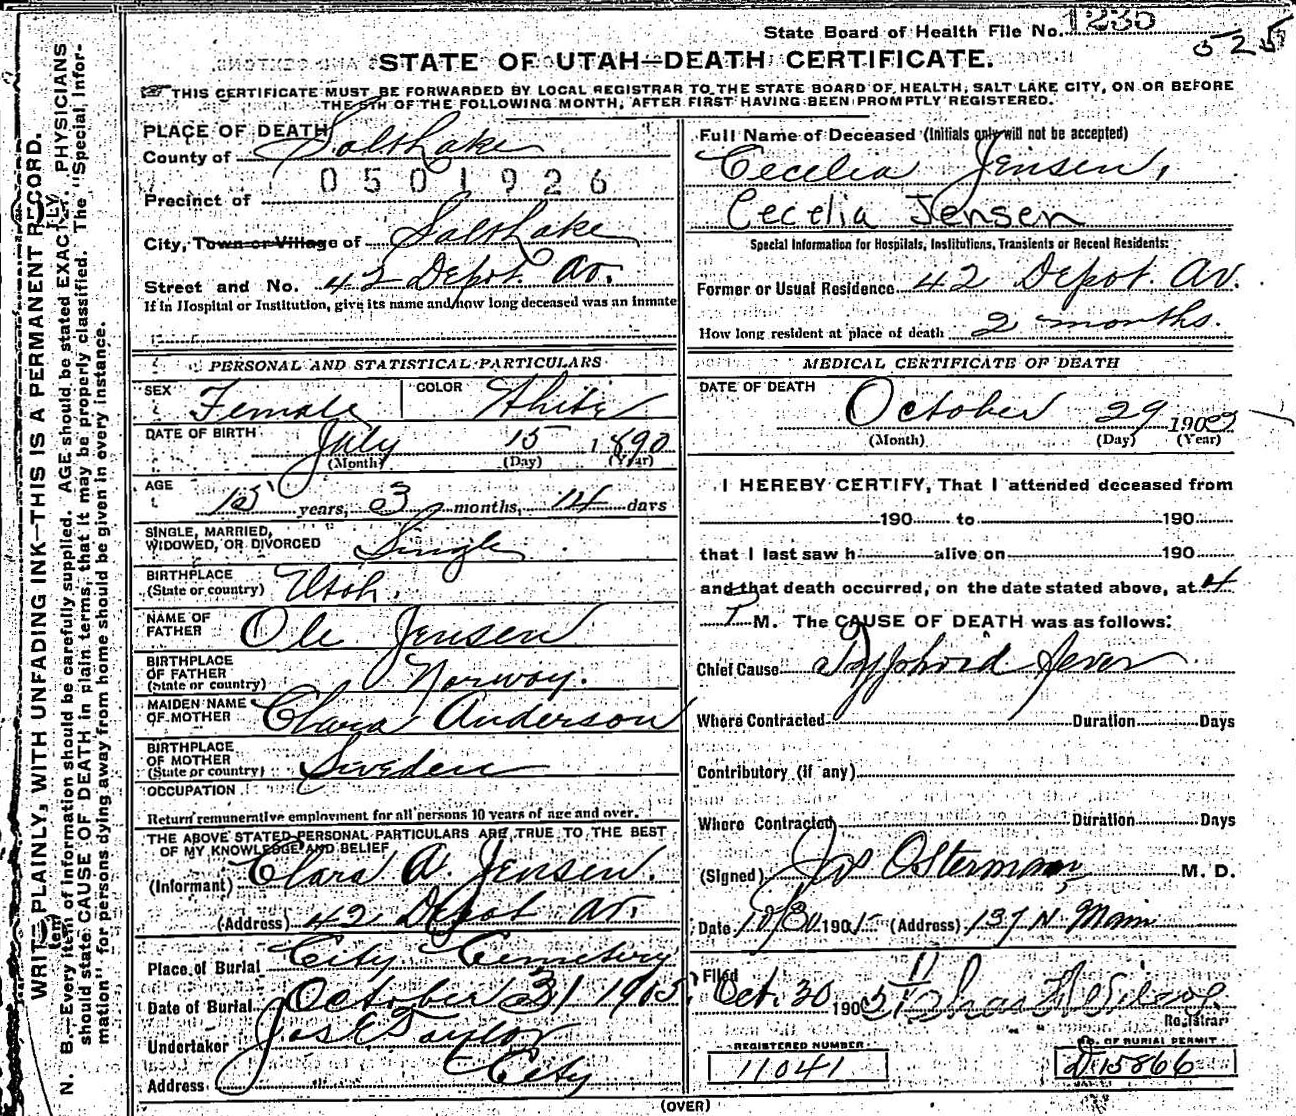 State Board of Health File No. 1235
525
STATE OF UTAH—DEATH CERTIFICATE.
THIS CERTIFICATE MUST BE FORWARDED BY LOCAL REGISTRAR TO THE STATE BOARD OF HEALTH, SALT LAKE CITY, ON OR BEFORE
THE 5TH OF THE FOLLOWING MONTH, AFTER FIRST HAVING BEEN PROMPTLY REGISTERED.
WRITE PLAINLY, WITH UNFADING INK—THIS IS A PERMANENT RECORD.
N. B.—Every item of information should be carefully supplied. AGE should be stated EXACTLY. PHYSICIANS
should state CAUSE OF DEATH in plain terms, that it may be properly classified. The "Special Infor-
mation" for persons dying away from home should be given in every instance.
PLACE OF DEATH
County of Salt Lake
0501926
Precinct of
City, Town or Village of Salt Lake
Street and No. 42 Depot. Av.
If in Hospital or Institution, give its name and how long deceased was an inmate
PERSONAL AND STATISTICAL PARTICULARS
SEX Female COLOR White
DATE OF BIRTH July 15 1890
(Month) (Day) (Year)
AGE
15 years, 3 months, 14 days
SINGLE, MARRIED,
WIDOWED, OR DIVORCED Single
BIRTHPLACE
(State or country) Utah.
NAME OF
FATHER Ole Jensen
BIRTHPLACE
OF FATHER
(State or country) Norway.
MAIDEN NAME
OF MOTHER Clara Anderson
BIRTHPLACE
OF MOTHER
(State or country) Sweden
OCCUPATION
Return remunerative employment for all persons 10 years of age and over.
THE ABOVE STATED PERSONAL PARTICULARS ARE TRUE TO THE BEST
OF MY KNOWLEDGE AND BELIEF
(Informant) Clara A. Jensen.
(Address) 42 Depot Av.
Place of Burial City Cemetery
Date of Burial October 31 1905
Undertaker Jos E Taylor
Address City
Full Name of Deceased (Initials only will not be accepted)
Cecelia Jensen,
Cecelia Jensen
Special Information for Hospitals, Institutions, Transients or Recent Residents:
Former or Usual Residence 42 Depot. Av.
How long resident at place of death 2 months.
MEDICAL CERTIFICATE OF DEATH
DATE OF DEATH
October 29 190
(Month) (Day) (Year)
I HEREBY CERTIFY, That I attended deceased from
190 to 190
that I last saw h alive on 190
and that death occurred, on the date stated above, at 4
P M. The CAUSE OF DEATH was as follows:
Chief Cause Typhoid fever
Where Contracted Duration Days
Contributory (if any)
Where Contracted Duration Days
(Signed) Jos Osterman M. D.
Date 10/30 1905 (Address) 137 N. Main
Filed
Oct. 30 1905
Registrar
REGISTERED NUMBER
11041
NO. OF BURIAL PERMIT
D15866
(OVER)